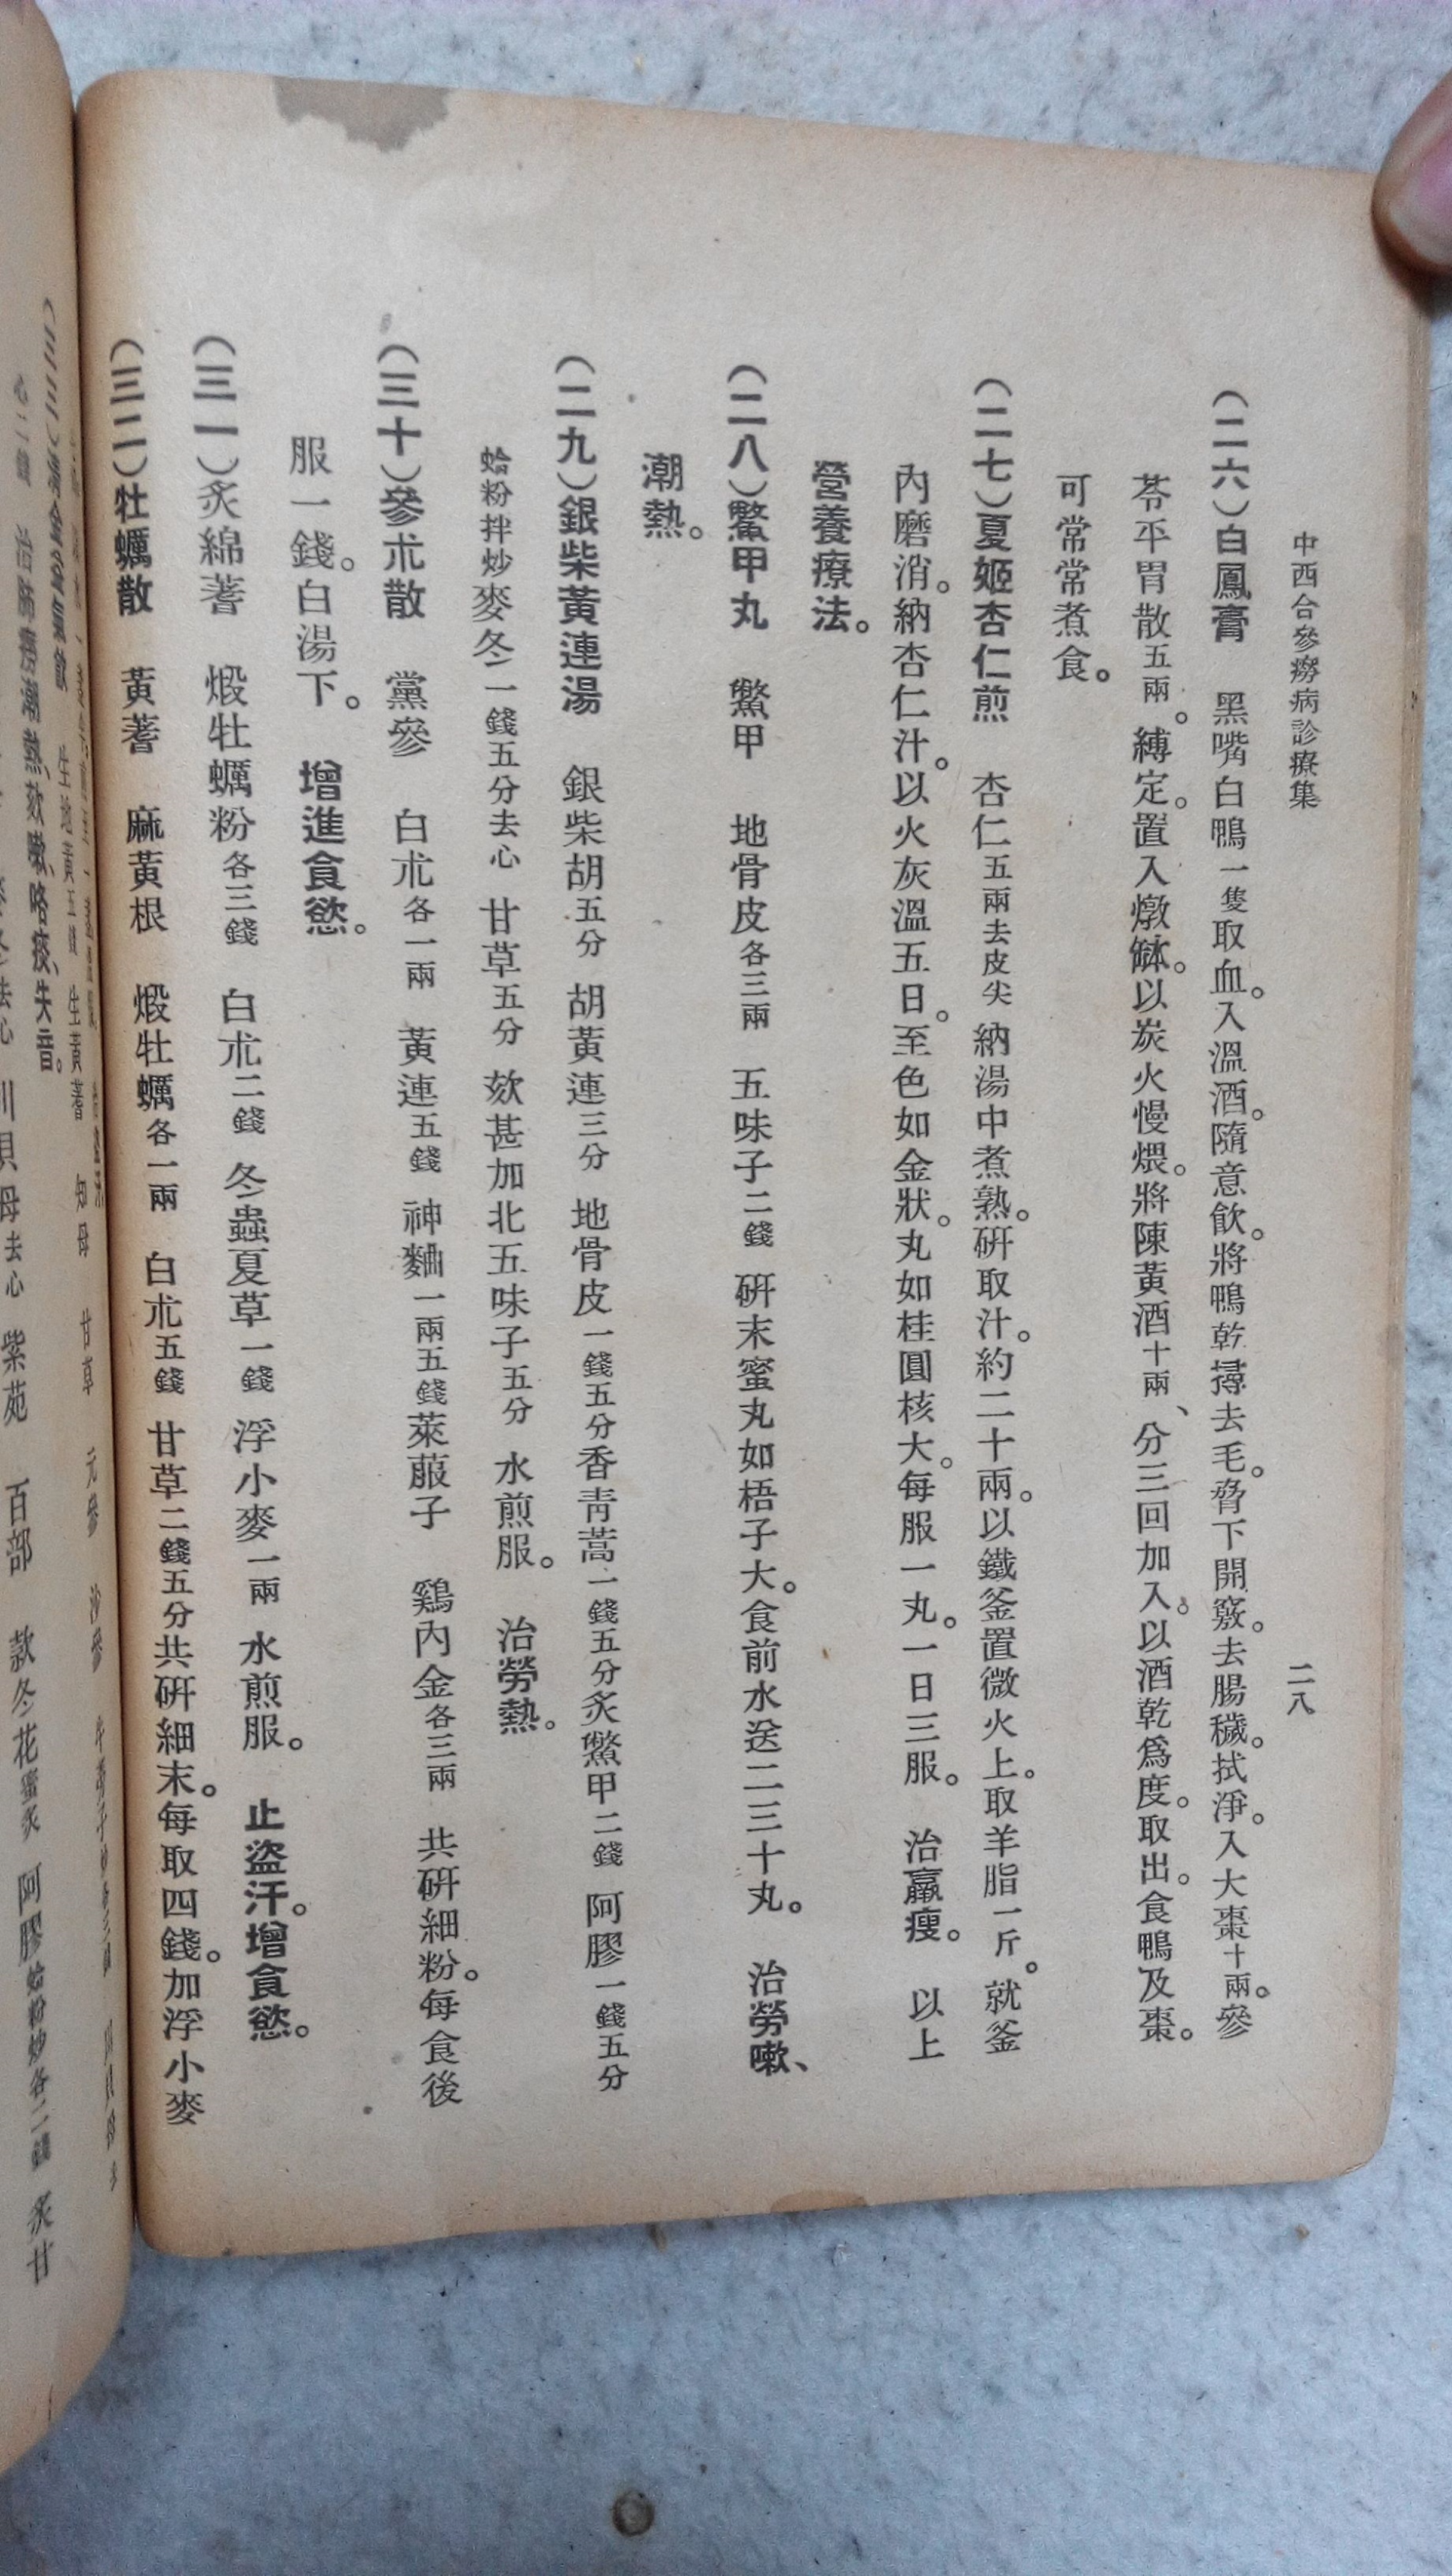 中西合參癆病診療集　二八
（二六）白鳳膏　黑嘴白鴨一隻取血。入溫酒。隨意飲。將鴨乾撏去毛。脅下開竅。去腸穢。拭淨。入大棗十兩。參
苓平胃散五兩。縛定。置入燉缽。以炭火慢煨。將陳黃酒十兩、分三回加入。以酒乾爲度。取出。食鴨及棗。
可常常煮食。
（二七）夏姬杏仁煎　杏仁五兩去皮尖　納湯中煮熟。硏取汁。約二十兩。以鐵釜置微火上。取羊脂一斤。就釜
內磨消。納杏仁汁。以火灰溫五日。至色如金狀。丸如桂圓核大。每服一丸。一日三服。　治羸瘦。　以上
營養療法。
（二八）鱉甲丸　鱉甲　地骨皮各三兩　五味子二錢　硏末蜜丸如梧子大。食前水送二三十丸。　治勞嗽、
潮熱。
（二九）銀柴黃連湯　銀柴胡五分　胡黃連三分　地骨皮一錢五分香靑蒿一錢五分炙鱉甲二錢　阿膠一錢五分
蛤粉拌炒麥冬一錢五分去心　甘草五分　欬甚加北五味子五分　水煎服。　治勞熱。
（三十）參朮散　黨參　白朮各一兩　黃連五錢　神麯一兩五錢萊菔子　鷄內金各三兩　共硏細粉。每食後
服一錢。白湯下。　增進食慾。
（三一）炙綿蓍　煅牡蠣粉各三錢　白朮二錢　冬蟲夏草一錢　浮小麥一兩　水煎服。　止盜汗。增食慾。
（三二）牡蠣散　黃蓍　麻黃根　煅牡蠣各一兩　白朮五錢　甘草二錢五分共硏細末。每取四錢。加浮小麥
生地黃五錢　生黃蓍　知母　甘草　元參　沙參
治肺癆潮熱、欬嗽、咯痰、失音。
川貝母去心　紫苑　百部　款冬花蜜炙　阿膠蛤粉炒各二錢　炙甘